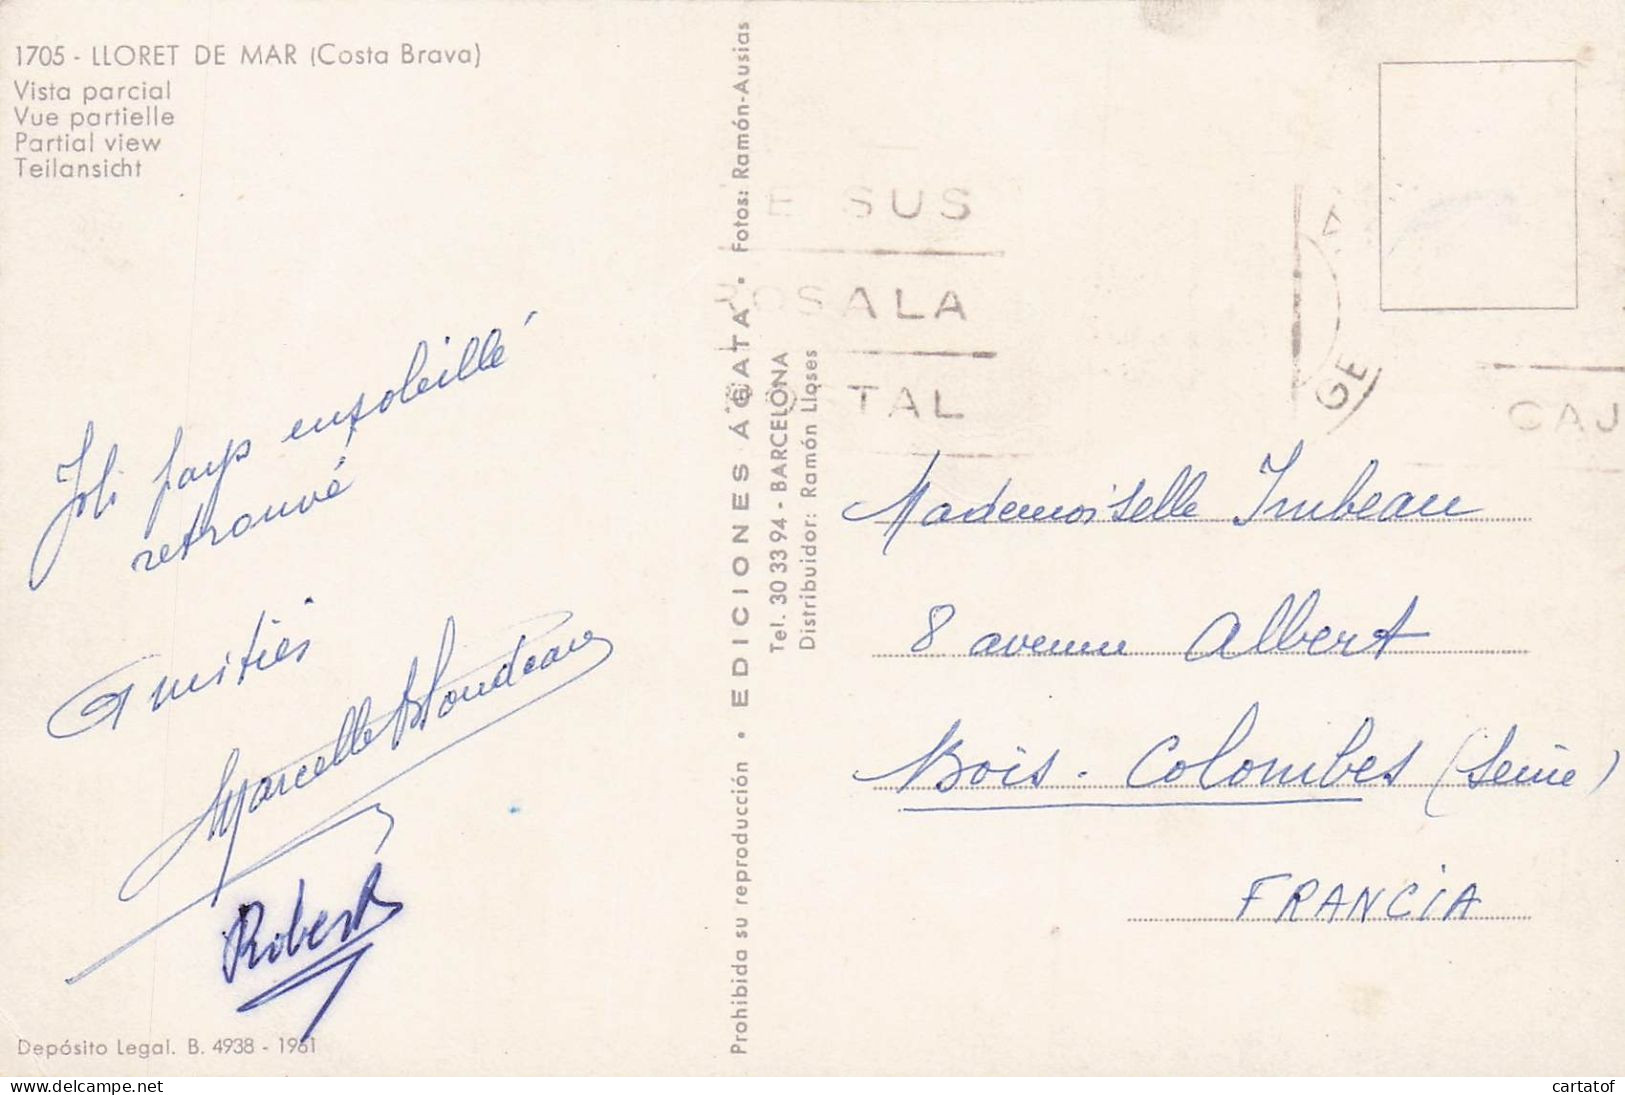 1705 - LLORET DE MAR (Costa Brava)
Vista parcial
Vue partielle
Partial view
Teilansicht
Joli pays ensoleillé
retrouvé
Amitiés
Marcelle
Robert
Depósito Legal. B. 4938 - 1961
Prohibida su reproducción • EDICIONES ÁGATA • Fotos: Ramón-Ausias
Tel. 30 33 94 - BARCELONA
Distribuidor: Ramón Lloses
E SUS
OSALA
STAL
GE
CAJ
Mademoiselle Imbeau
8 avenue Albert
Bois-Colombes (Seine)
FRANCIA
delcampe.net
cartatof